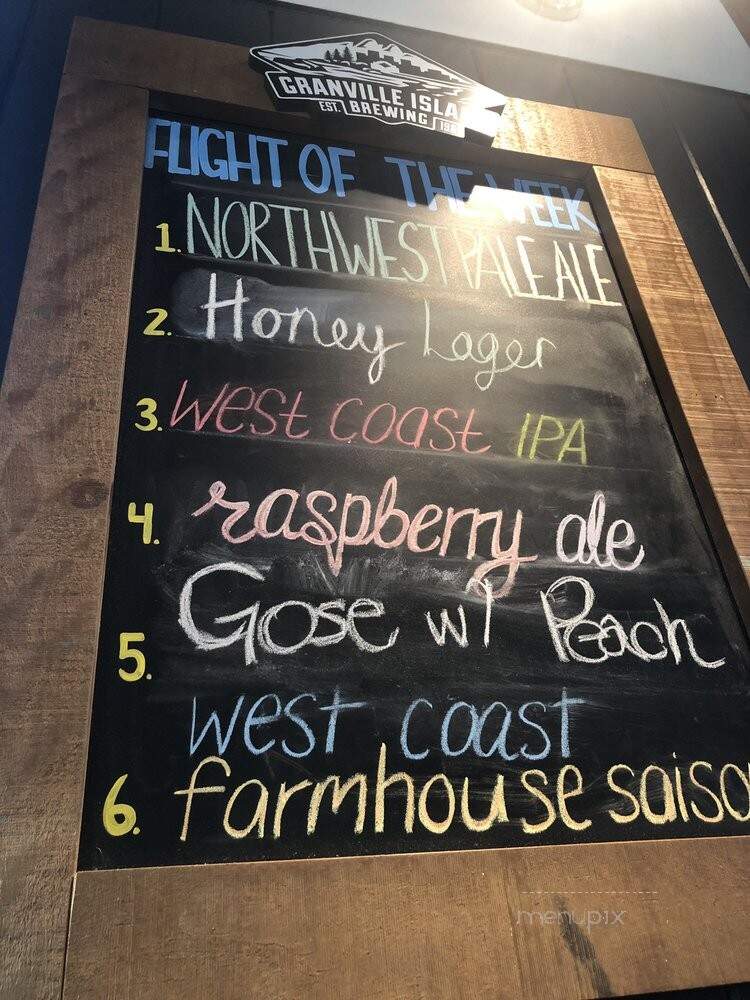 GRANVILLE ISLA
EST. BREWING 198
FLIGHT OF THE WEEK
1. NORTHWEST PALE ALE
2. Honey Lager
3. West Coast IPA
4. raspberry ale
5. Gose w/ Peach
west coast
6. farmhouse saiso
menupix